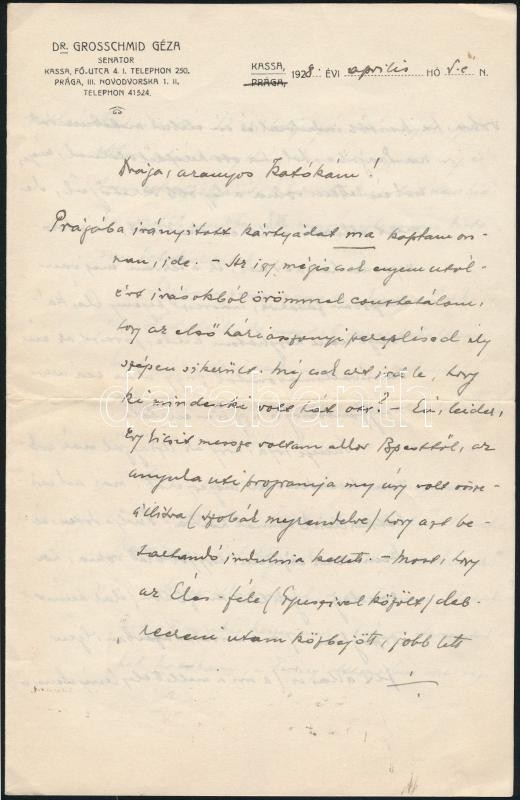 DR. GROSSCHMID GÉZA
SENATOR
KASSA, FŐ-UTCA 4. I. TELEPHON 250.
PRÁGA, III. NOVODVORSKA 1. II.
TELEPHON 41524.
KASSA,
PRÁGA, 1928. ÉVI április HÓ 5.-é N.
Drága, aranyos Katókám!
Prágába irányitott kártyádat ma kaptam on-
nan, ide. – Az így mégis csak utól-
ért írásokból örömmel constatálom,
hogy az első háziasszonyi szereplésed ily
szépen sikerült. Még csak azt írd le, hogy
ki mindenki volt hát ott? – Én, leider,
egy kicsit messze voltam akkor Bpesttől, az
anyuka uti programja meg úgy volt össze-
állitva (szobák megrendelve) hogy azt be-
tartandó indulnia kellett. – Most, hogy
az féle ( közölt) deb-
receni utam közbejött, jobb lett
darabanth